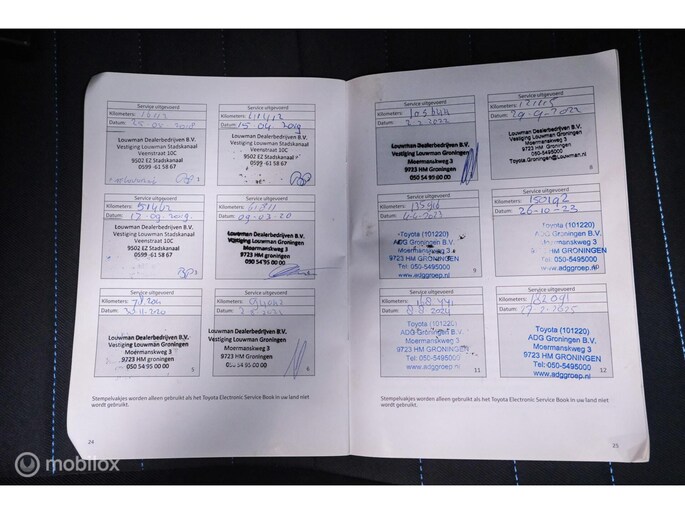 Service uitgevoerd
Kilometers:
Datum: 25 04 2018
Louwman Dealerbedrijven B.V.
Vestiging Louwman Stadskanaal
Veenstraat 10C
9502 EZ Stadskanaal
0599 -61 58 67
1
Service uitgevoerd
Kilometers: 41412
Datum: 15 04 2019
Louwman Dealerbedrijven B.V.
Vestiging Louwman Stadskanaal
Veenstraat 10C
9502 EZ Stadskanaal
0599 -61 58 67
Service uitgevoerd
Kilometers: 51442
Datum: 17-09-2019
Louwman Dealerbedrijven B.V.
Vestiging Louwman Stadskanaal
Veenstraat 10C
9502 EZ Stadskanaal
0599 -61 58 67
3
Service uitgevoerd
Kilometers: 61811
Datum: 09-03-20
Louwman Dealerbedrijven B.V.
Vestiging Louwman Groningen
Moermanskweg 3
9723 HM groningen
050 54 95 00 00
Service uitgevoerd
Kilometers:
Datum:
Louwman Dealerbedrijven B.V.
Vestiging Louwman Groningen
Moermanskweg 3
9723 HM groningen
050 54 95 00 00
5
Service uitgevoerd
Kilometers:
Datum:
Louwman Dealerbedrijven B.V.
Vestiging Louwman Groningen
Moermanskweg 3
9723 HM groningen
050 54 95 00 00
6
Stempelvakjes worden alleen gebruikt als het Toyota Electronic Service Book in uw land niet
wordt gebruikt.
24
Service uitgevoerd
Kilometers:
Datum: 2-2-2022
Louwman Dealerbedrijven B.V.
Vestiging Louwman Groningen
Moermanskweg 3
9723 HM Groningen
050 54 95 00 00
Service uitgevoerd
Kilometers: 121115
Datum: 29-9-2022
Louwman Dealerbedrijven B.V.
Vestiging Louwman Groningen
Moermanskweg 3
9723 HM Groningen
050-5495000
Toyota.Groningen@Louwman.nl
8
Service uitgevoerd
Kilometers:
Datum: 4-4-2023
Toyota (101220)
ADG Groningen B.V.
Moermanskweg 3
9723 HM GRONINGEN
Tel: 050-5495000
www.adggroep.nl
9
Service uitgevoerd
Kilometers: 150192
Datum: 26-10-23
Toyota (101220)
ADG Groningen B.V.
Moermanskweg 3
9723 HM GRONINGEN
Tel: 050-5495000
www.adggroep.nl
10
Service uitgevoerd
Kilometers:
Datum: 8-8-2024
Toyota (101220)
ADG Groningen B.V.
Moermanskweg 3
9723 HM GRONINGEN
Tel: 050-5495000
www.adggroep.nl
11
Service uitgevoerd
Kilometers:
Datum: 17-2-2025
Toyota (101220)
ADG Groningen B.V.
Moermanskweg 3
9723 HM GRONINGEN
Tel: 050-5495000
www.adggroep.nl
12
Stempelvakjes worden alleen gebruikt als het Toyota Electronic Service Book in uw land niet
wordt gebruikt.
25
mobilox